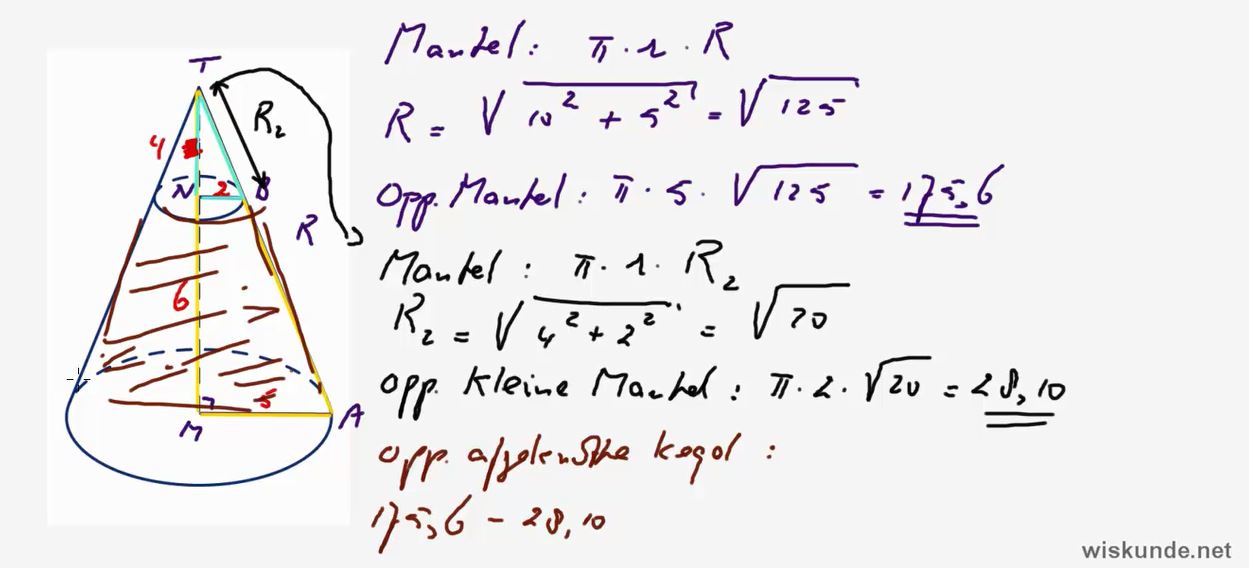 T
4
R₂
N
2
B
R
6
5
M
A
Mantel : π · r · R
R = √10² + 5² = √125
Opp. Mantel : π · 5 · √125 = 175,6
Mantel : π · r · R₂
R₂ = √4² + 2² = √20
Opp. Kleine Mantel : π · 2 · √20 = 28,10
Opp. afgeknotte kegel :
175,6 - 28,10
wiskunde.net